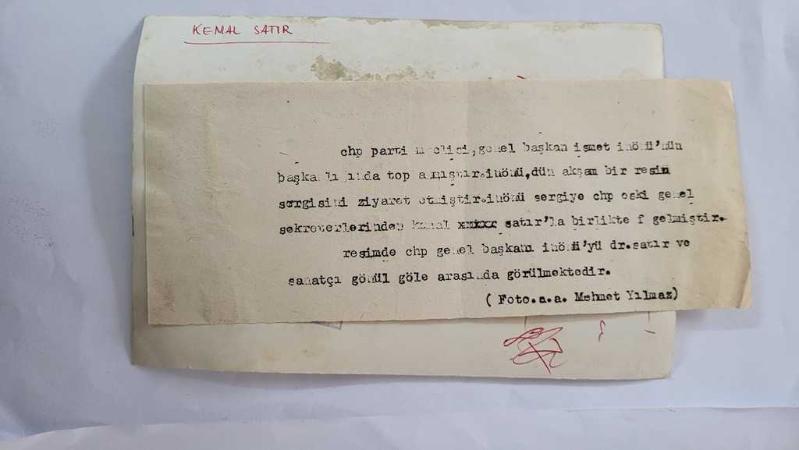 KEMAL SATIR
chp parti meclisi,genel başkan işmet inönü'nün
başkanlığında toplanmıştır.inönü,dün akşam bir resim
sergisini ziyaret etmiştir.inönü sergiye chp eski genel
sekreterlerinden kemal xxxxxx şatır'la birlikte f gelmiştir.
resimde chp genel başkanı inönü'yü dr.satır ve
sanatçı gönül göle arasında görülmektedir.
(Foto.a.a. Mehmet Yılmaz)